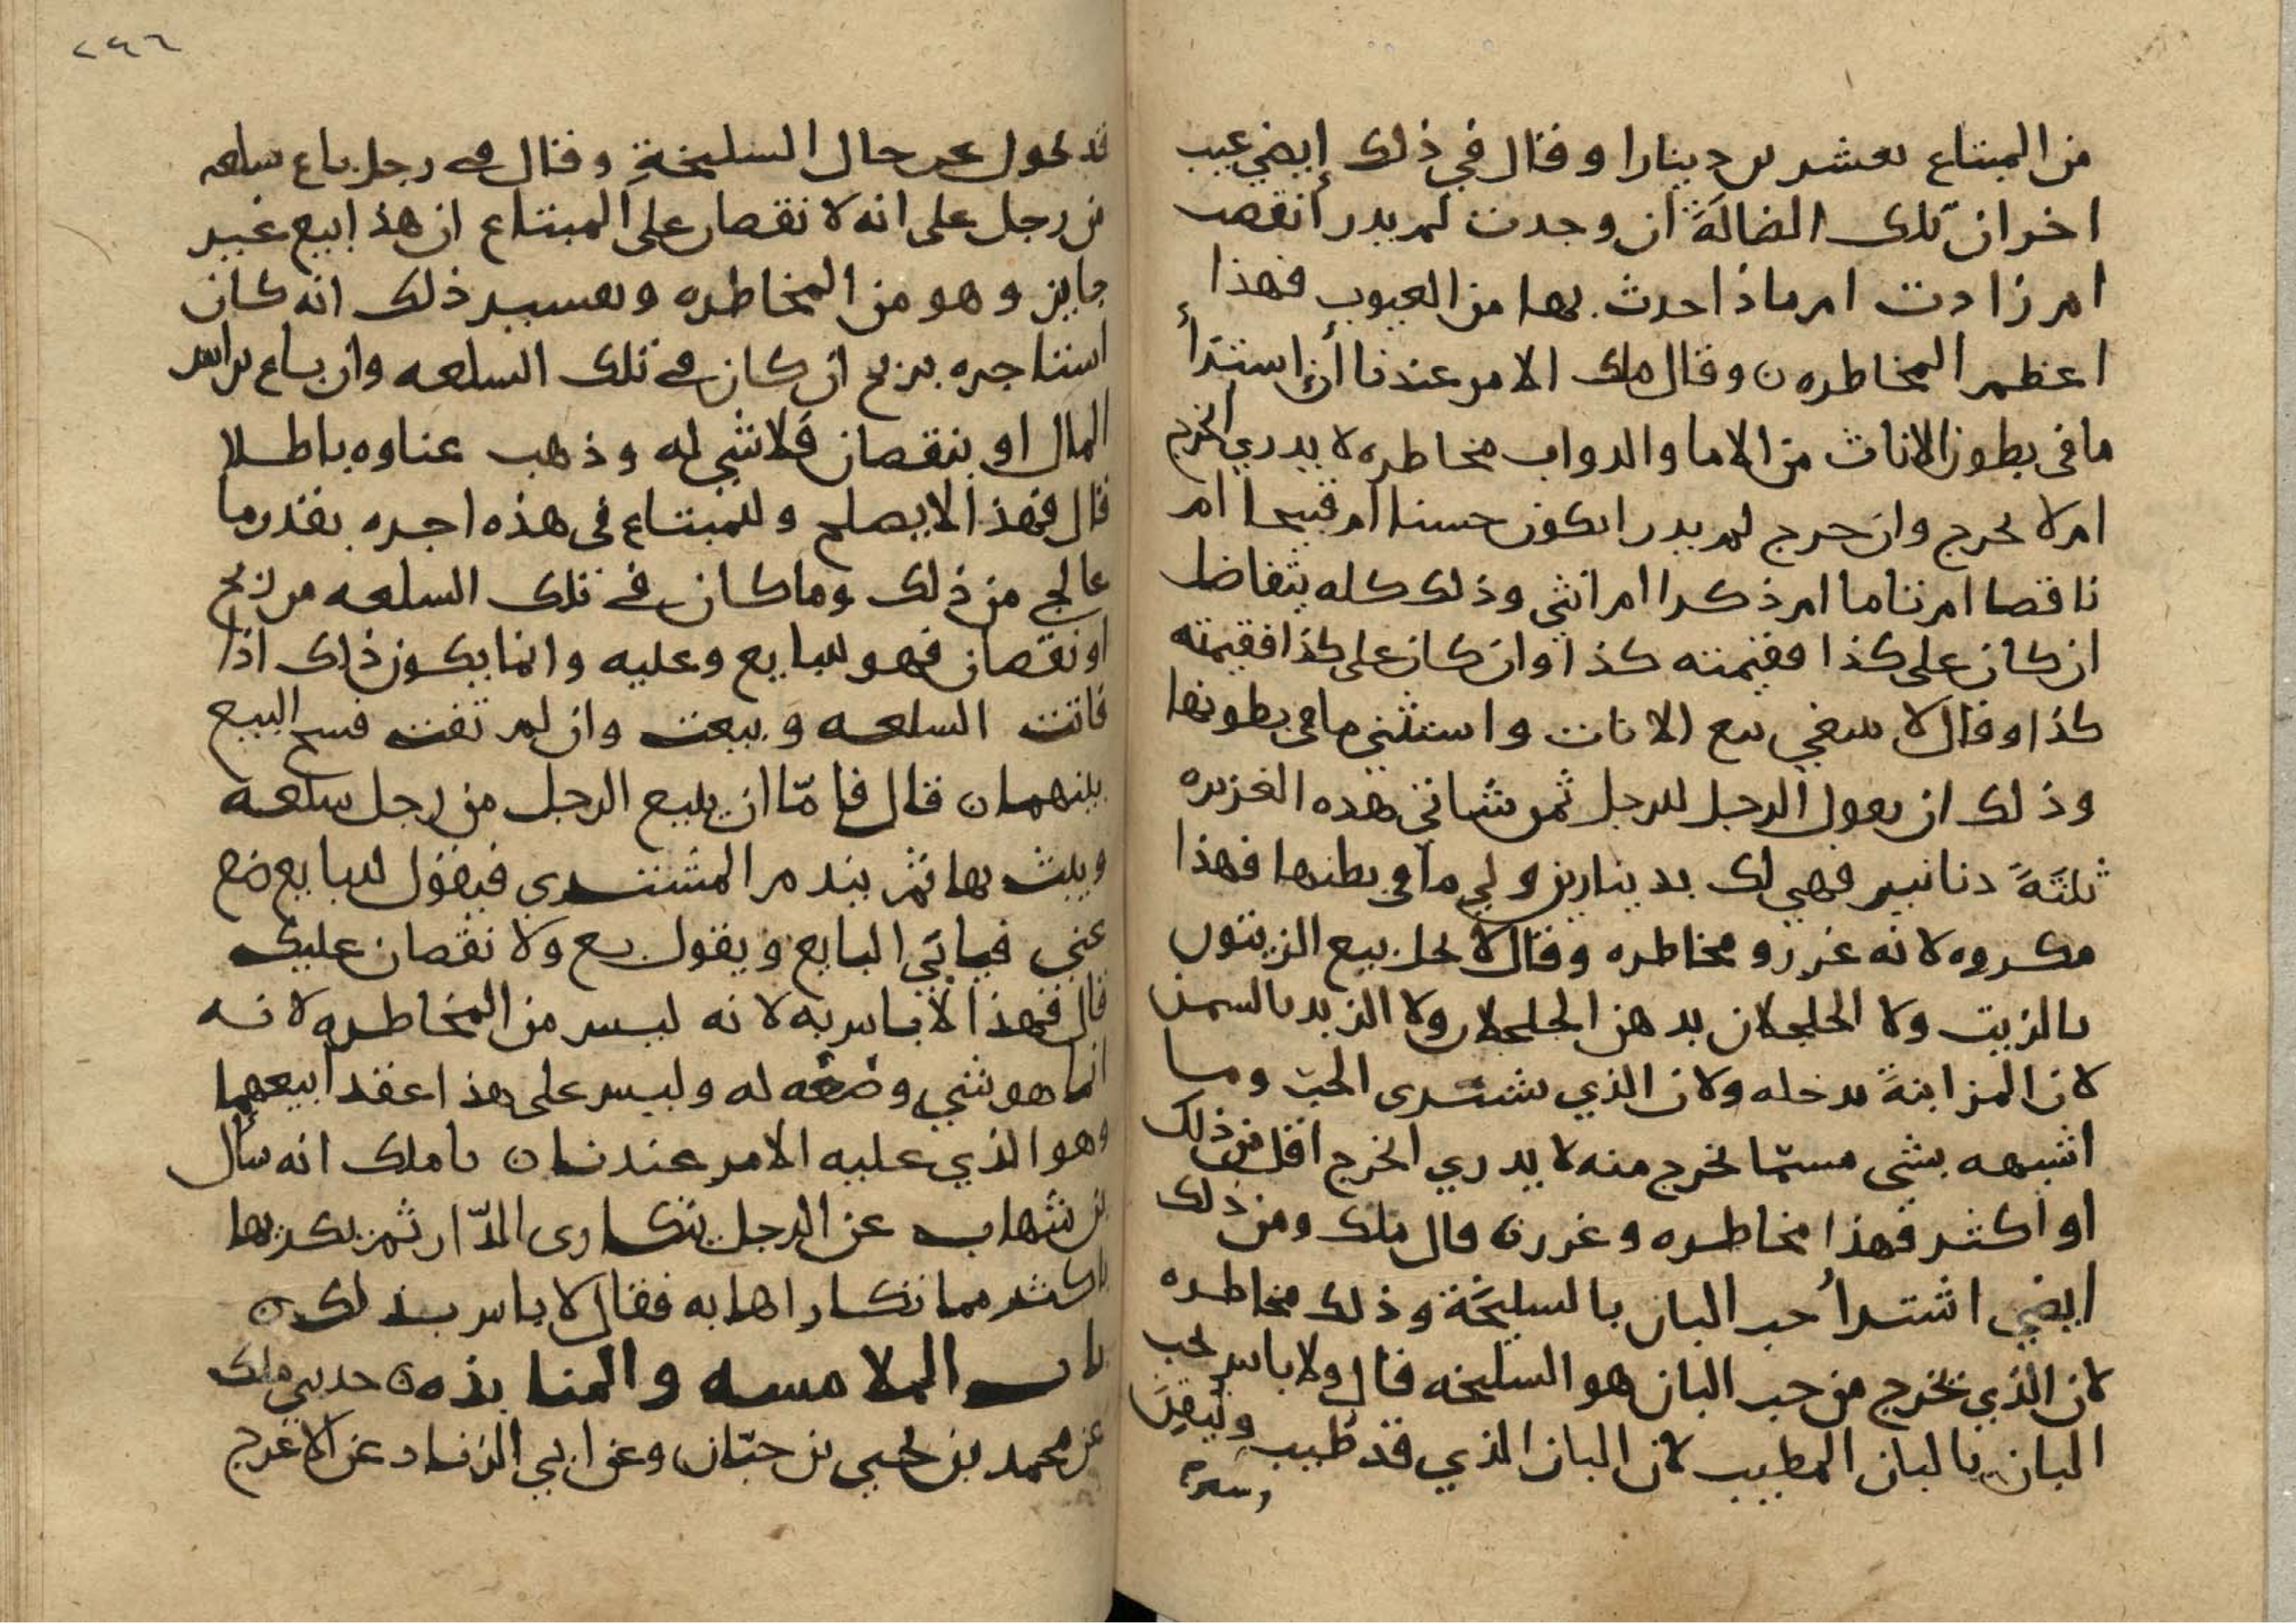 من المبتاع بعشرين دينارا وقال في ذلك إيضي عيب
اخر ان تلك الضالة ان وجدت لم يدر أنقصت
ام زادت ام ماذا حدث بها من العيوب فهذا
اعظم المخاطره ن وقال ملك الامر عندنا أن اشترأ
ما في بطون الاناث من الاما والدواب مخاطره لا يدري الخرج
ام لا يخرج وان خرج لم يدر ايكون حسنا ام قبيحا ام
ناقصا ام تاما ام ذكرا ام انثي وذلك كله يتفاضل
ان كان على كذا فقيمته كذا وان كان على كذا فقيمته
كذا وقال لا ينبغي بيع الاناث واستثني ما في بطونها
وذلك ان يقول الرجل للرجل ثمن شاتي هذه الغزيره
ثلثة دنانير فهي لك بدينارين ولي ما في بطنها فهذا
مكروه لانه غرر ومخاطره وقال لا يحل بيع الزيتون
بالزيت ولا الجلجلان بدهن الجلجلان ولا الزبد بالسمن
لان المزابنة تدخله ولان الذي يشترى الحب وما
اشبهه بشى مسمّا يخرج منه لا يدري الخرج اقل من ذلك
او اكثر فهذا مخاطره وغرر ن قال ملك ومن ذلك
ايضي اشترأ حب البان بالسليخة وذلك مخاطره
لان الذي يخرج من حب البان هو السليخه قال ولا باس بحب
البان بالبان المطيب لان البان الذي قد طُيب
قد تحول عن حال السليخة وقال في رجل باع سلعه
من رجل على انه لا نقصان على المبتاع ان هذا بيع غير
جايز وهو من المخاطره وتفسير ذلك انه كان
استاجره بربح ان كان في تلك السلعه وان باع براس
المال او بنقصان فلا شي له وذهب عناوه باطلا
قال فهذا لا يصلح وللمبتاع في هذه اجره بقدر ما
عالج من ذلك وما كان في تلك السلعه من ربح
او نقصان فهو للبايع وعليه وانما يكون ذلك اذا
فاتت السلعه وبيعت وان لم تفت فسخ البيع
بينهما ن قال فامّا ان يبيع الرجل من رجل سلعه
ويبت بها ثم يندم المشتري فيقول للبايع ضع
عني فيابي البايع ويقول بع ولا نقصان عليك
قال فهذا لا باس به لانه ليس من المخاطره لانه
انما هو شي وضعه له وليس على هذا عقدا بيعهما
وهو الذي عليه الامر عندنا ن ملك انه سأل
بن شهاب عن الرجل يتكارى الدّار ثم يكريها
باكثر مما تكاراها به فقال لا باس بذلك ن
باب الملامسه والمنابذه ن حدثني ملك
عن محمد بن يحيي بن حبّان وعن ابي الزناد عن الاعرج
٢٩٦